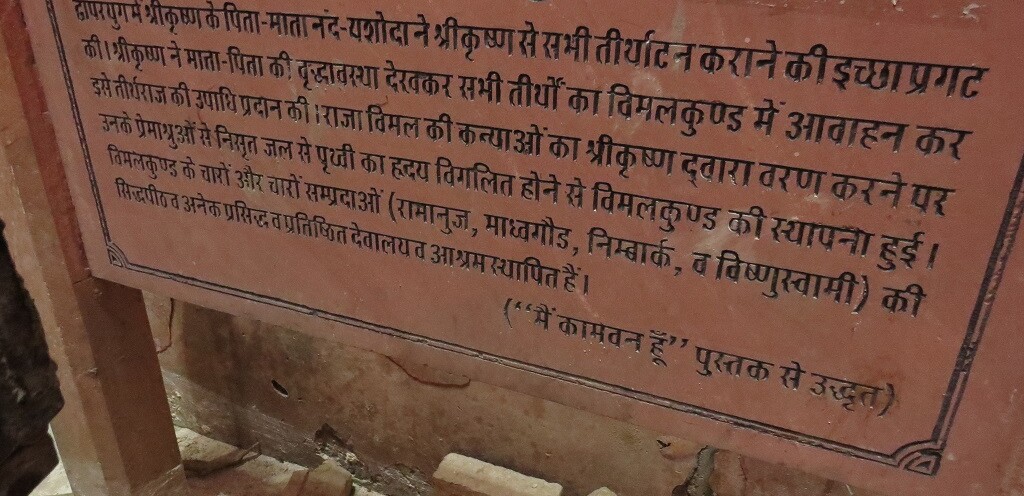 द्वापरयुग में श्रीकृष्ण के पिता-माता नंद-यशोदा ने श्रीकृष्ण से सभी तीर्थाटन कराने की इच्छा प्रगट
की। श्रीकृष्ण ने माता-पिता की वृद्धावस्था देखकर सभी तीर्थों का विमलकुण्ड में आवाहन कर
इसे तीर्थराज की उपाधि प्रदान की। राजा विमल की कन्याओं का श्रीकृष्ण द्वारा वरण करने पर
उनके प्रेमाश्रुओं से निसृत जल से पृथ्वी का हृदय विगलित होने से विमलकुण्ड की स्थापना हुई।
विमलकुण्ड के चारों और चारों सम्प्रदाओं (रामानुज, माध्वगौड, निम्बार्क, व विष्णुस्वामी) की
सिद्धपीठ व अनेक प्रसिद्ध व प्रतिष्ठित देवालय व आश्रम स्थापित हैं।
(“मैं कामवन हूँ” पुस्तक से उद्धृत)